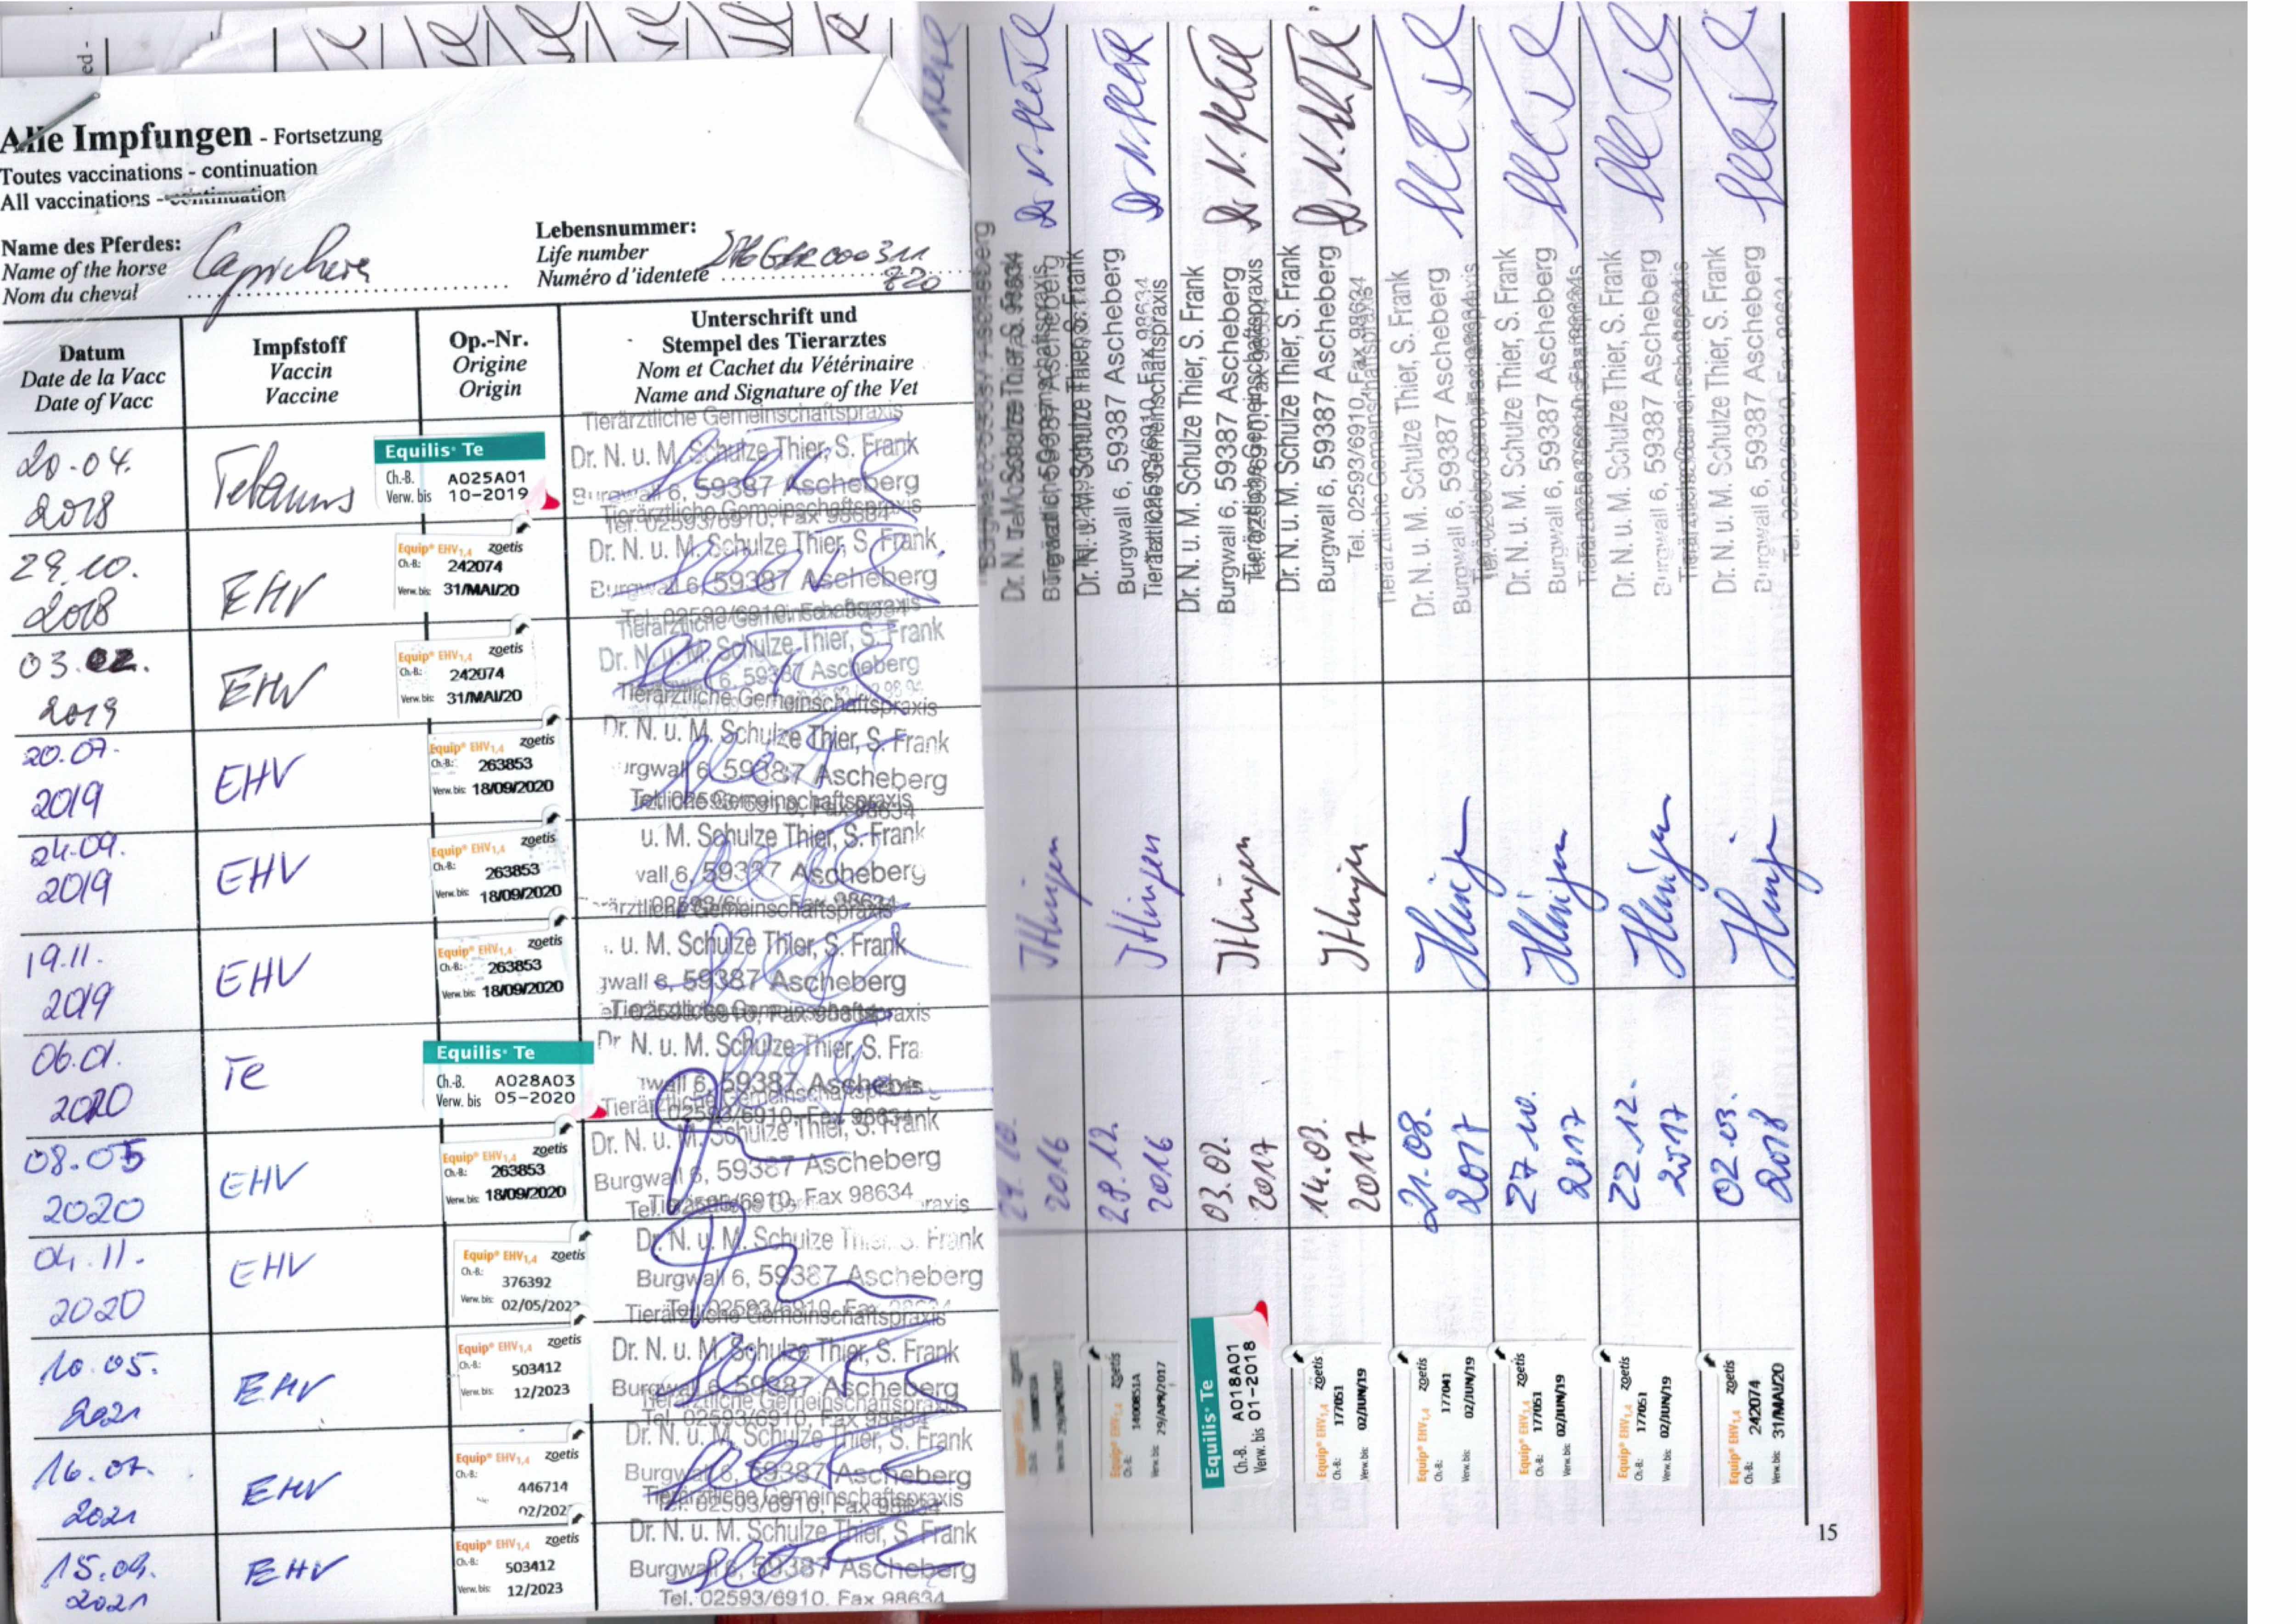 ed -
Alle Impfungen - Fortsetzung
Toutes vaccinations - continuation
All vaccinations - continuation
Name des Pferdes:
Name of the horse
Nom du cheval
Lebensnummer:
Life number
Numéro d'identeté
276 000311
720
Datum
Date de la Vacc
Date of Vacc
Impfstoff
Vaccin
Vaccine
Op.-Nr.
Origine
Origin
Unterschrift und
Stempel des Tierarztes
Nom et Cachet du Vétérinaire
Name and Signature of the Vet
20.04.
2018
Tetanus
Equilis Te
Ch.-B. A025A01
Verw. bis 10-2019
Tierärztliche Gemeinschaftspraxis
Dr. N. u. M. Schulze Thier, S. Frank
Burgwall 6, 59387 Ascheberg
Tel. 02593/6910, Fax 98634
29.10.
2018
EHV
Equip® EHV1,4 zoetis
Ch.-B.: 242074
Verw. bis: 31/MAI/20
Tierärztliche Gemeinschaftspraxis
Dr. N. u. M. Schulze Thier, S. Frank
Burgwall 6, 59387 Ascheberg
Tel. 02593/6910, Fax 98634
03.02.
2019
EHV
Equip® EHV1,4 zoetis
Ch.-B.: 242074
Verw. bis: 31/MAI/20
Tierärztliche Gemeinschaftspraxis
Dr. N. u. M. Schulze Thier, S. Frank
6, 59387 Ascheberg
20.07.
2019
EHV
Equip® EHV1,4 zoetis
Ch.-B.: 263853
Verw. bis: 18/09/2020
Tierärztliche Gemeinschaftspraxis
Dr. N. u. M. Schulze Thier, S. Frank
urgwall 6, 59387 Ascheberg
24.09.
2019
EHV
Equip® EHV1,4 zoetis
Ch.-B.: 263853
Verw. bis: 18/09/2020
tliche Gemeinschaftspraxis
u. M. Schulze Thier, S. Frank
wall 6, 59387 Ascheberg
19.11.
2019
EHV
Equip® EHV1,4 zoetis
Ch.-B.: 263853
Verw. bis: 18/09/2020
ärztliche Gemeinschaftspraxis
. u. M. Schulze Thier, S. Frank
gwall 6, 59387 Ascheberg
06.01.
2020
Te
Equilis Te
Ch.-B. A028A03
Verw. bis 05-2020
Tierärztliche Gemeinschaftspraxis
Dr N. u. M. Schulze Thier, S. Fra
wall 6, 59387 Ascheberg
02593/6910, Fax 98634
08.05
2020
EHV
Equip® EHV1,4 zoetis
Ch.-B.: 263853
Verw. bis: 18/09/2020
Tierärztliche Gemeinschaftspraxis
Dr. N. u. M. Schulze Thier, S. Frank
Burgwall 6, 59387 Ascheberg
Tel. 02593/6910, Fax 98634
04.11.
2020
EHV
Equip® EHV1,4 zoetis
Ch.-B.: 376392
Verw. bis: 02/05/202
Dr. N. u. M. Schulze Thier, S. Frank
Burgwall 6, 59387 Ascheberg
Tel. 02593/6910, Fax 98634
10.05.
2021
EHV
Equip® EHV1,4 zoetis
Ch.-B.: 503412
Verw. bis: 12/2023
Tierärztliche Gemeinschaftspraxis
Dr. N. u. M. Schulze Thier, S. Frank
Burgwall 6, 59387 Ascheberg
Tel. 02593/6910, Fax 98634
16.07.
2021
EHV
Equip® EHV1,4 zoetis
Ch.-B.: 446714
02/202
Tierärztliche Gemeinschaftspraxis
Dr. N. u. M. Schulze Thier, S. Frank
Burgwall 6, 59387 Ascheberg
Tel. 02593/6910, Fax 98634
15.09.
2021
EHV
Equip® EHV1,4 zoetis
Ch.-B.: 503412
Verw. bis: 12/2023
Tierärztliche Gemeinschaftspraxis
Dr. N. u. M. Schulze Thier, S. Frank
Burgwall 6, 59387 Ascheberg
Tel. 02593/6910, Fax 98634
2016
28.12.
2016
Equip® EHV1,4 zoetis
Ch.-B.: 1400851A
Verw. bis: 29/APR/2017
Dr. N. u. M. Schulze Thier, S. Frank
Burgwall 6, 59387 Ascheberg
02593/6910, Fax 98634
03.02.
2017
Equilis Te
Ch.-B. A018A01
Verw. bis 01-2018
Tierärztliche Gemeinschaftspraxis
Dr. N. u. M. Schulze Thier, S. Frank
Burgwall 6, 59387 Ascheberg
14.03.
2017
Equip® EHV1,4 zoetis
Ch.-B.: 177051
Verw. bis: 02/JUN/19
Tierärztliche Gemeinschaftspraxis
Dr. N. u. M. Schulze Thier, S. Frank
Burgwall 6, 59387 Ascheberg
Tel. 02593/6910, Fax 98634
21.08.
2017
Equip® EHV1,4 zoetis
Ch.-B.: 177041
Verw. bis: 02/JUN/19
Tierärztliche Gemeinschaftspraxis
Dr. N. u. M. Schulze Thier, S. Frank
Burgwall 6, 59387 Ascheberg
27.10.
2017
Equip® EHV1,4 zoetis
Ch.-B.: 177051
Verw. bis: 02/JUN/19
Dr. N. u. M. Schulze Thier, S. Frank
Burgwall 6, 59387 Ascheberg
22.12.
2017
Equip® EHV1,4 zoetis
Ch.-B.: 177051
Verw. bis: 02/JUN/19
Dr. N. u. M. Schulze Thier, S. Frank
Burgwall 6, 59387 Ascheberg
02.03.
2018
Equip® EHV1,4 zoetis
Ch.-B.: 242074
Verw. bis: 31/MAI/20
Dr. N. u. M. Schulze Thier, S. Frank
Burgwall 6, 59387 Ascheberg
Tel. 02593/6910, Fax 98634
15